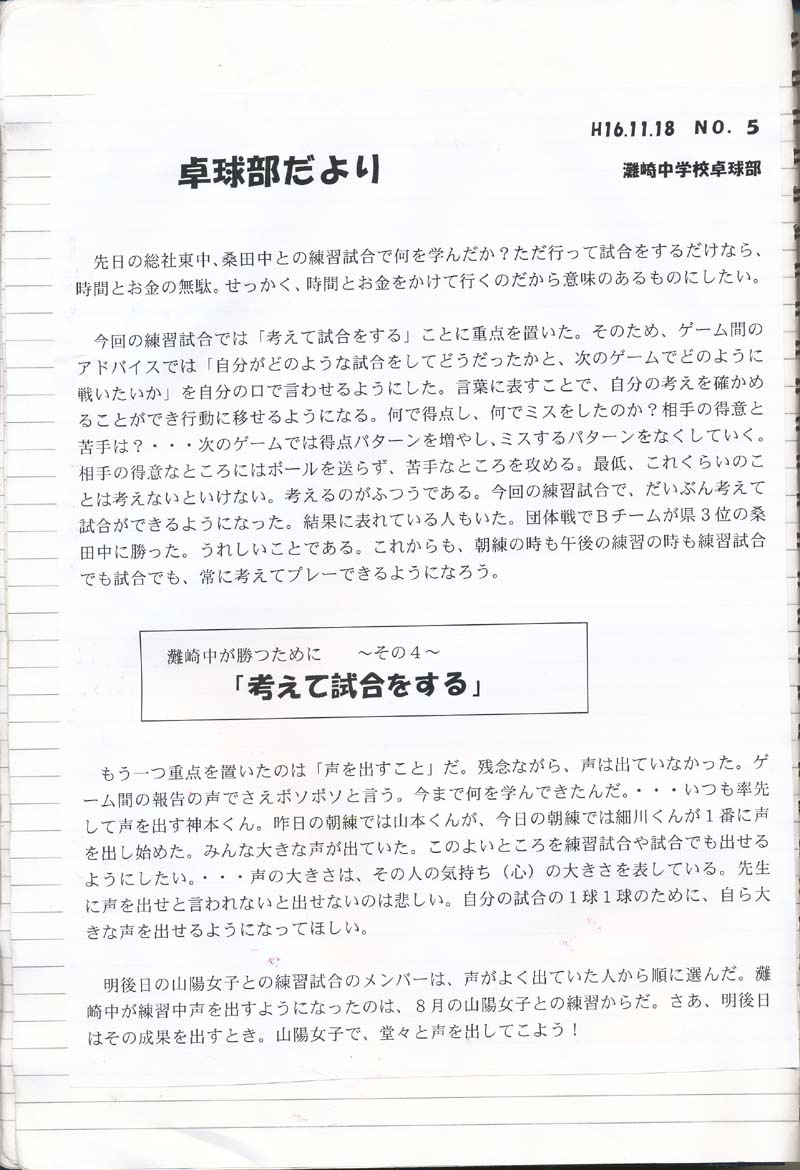 H16.11.18 NO. 5
卓球部だより
灘崎中学校卓球部
先日の総社東中、桑田中との練習試合で何を学んだか？ただ行って試合をするだけなら、
時間とお金の無駄。せっかく、時間とお金をかけて行くのだから意味のあるものにしたい。
今回の練習試合では「考えて試合をする」ことに重点を置いた。そのため、ゲーム間の
アドバイスでは「自分がどのような試合をしてどうだったかと、次のゲームでどのように
戦いたいか」を自分の口で言わせるようにした。言葉に表すことで、自分の考えを確かめ
ることができ行動に移せるようになる。何で得点し、何でミスをしたのか？相手の得意と
苦手は？・・・次のゲームでは得点パターンを増やし、ミスするパターンをなくしていく。
相手の得意なところにはボールを送らず、苦手なところを攻める。最低、これくらいのこ
とは考えないといけない。考えるのがふつうである。今回の練習試合で、だいぶん考えて
試合ができるようになった。結果に表れている人もいた。団体戦でＢチームが県３位の桑
田中に勝った。うれしいことである。これからも、朝練の時も午後の練習の時も練習試合
でも試合でも、常に考えてプレーできるようになろう。
灘崎中が勝つために　～その４～
「考えて試合をする」
もう一つ重点を置いたのは「声を出すこと」だ。残念ながら、声は出ていなかった。ゲ
ーム間の報告の声でさえボソボソと言う。今まで何を学んできたんだ。・・・いつも率先
して声を出す神本くん。昨日の朝練では山本くんが、今日の朝練では細川くんが１番に声
を出し始めた。みんな大きな声が出ていた。このよいところを練習試合や試合でも出せる
ようにしたい。・・・声の大きさは、その人の気持ち（心）の大きさを表している。先生
に声を出せと言われないと出せないのは悲しい。自分の試合の１球１球のために、自ら大
きな声を出せるようになってほしい。
明後日の山陽女子との練習試合のメンバーは、声がよく出ていた人から順に選んだ。灘
崎中が練習中声を出すようになったのは、８月の山陽女子との練習からだ。さあ、明後日
はその成果を出すとき。山陽女子で、堂々と声を出してこよう！